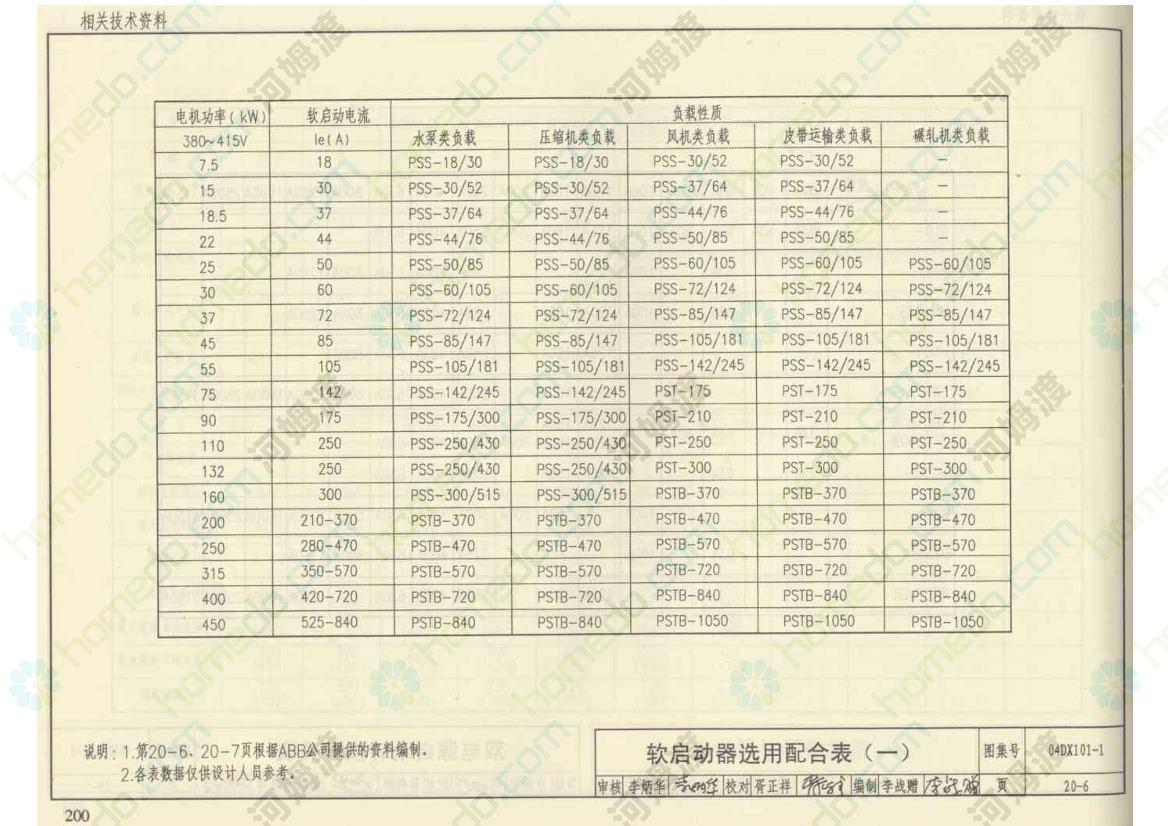 相关技术资料
电机功率(kW) 软启动电流 负载性质
380~415V Ie(A) 水泵类负载 压缩机类负载 风机类负载 皮带运输类负载 碾轧机类负载
7.5 18 PSS-18/30 PSS-18/30 PSS-30/52 PSS-30/52 —
15 30 PSS-30/52 PSS-30/52 PSS-37/64 PSS-37/64 —
18.5 37 PSS-37/64 PSS-37/64 PSS-44/76 PSS-44/76 —
22 44 PSS-44/76 PSS-44/76 PSS-50/85 PSS-50/85 —
25 50 PSS-50/85 PSS-50/85 PSS-60/105 PSS-60/105 PSS-60/105
30 60 PSS-60/105 PSS-60/105 PSS-72/124 PSS-72/124 PSS-72/124
37 72 PSS-72/124 PSS-72/124 PSS-85/147 PSS-85/147 PSS-85/147
45 85 PSS-85/147 PSS-85/147 PSS-105/181 PSS-105/181 PSS-105/181
55 105 PSS-105/181 PSS-105/181 PSS-142/245 PSS-142/245 PSS-142/245
75 142 PSS-142/245 PSS-142/245 PST-175 PST-175 PST-175
90 175 PSS-175/300 PSS-175/300 PST-210 PST-210 PST-210
110 250 PSS-250/430 PSS-250/430 PST-250 PST-250 PST-250
132 250 PSS-250/430 PSS-250/430 PST-300 PST-300 PST-300
160 300 PSS-300/515 PSS-300/515 PSTB-370 PSTB-370 PSTB-370
200 210-370 PSTB-370 PSTB-370 PSTB-470 PSTB-470 PSTB-470
250 280-470 PSTB-470 PSTB-470 PSTB-570 PSTB-570 PSTB-570
315 350-570 PSTB-570 PSTB-570 PSTB-720 PSTB-720 PSTB-720
400 420-720 PSTB-720 PSTB-720 PSTB-840 PSTB-840 PSTB-840
450 525-840 PSTB-840 PSTB-840 PSTB-1050 PSTB-1050 PSTB-1050
说明：1.第20-6、20-7页根据ABB公司提供的资料编制。
2.各表数据仅供设计人员参考。
软启动器选用配合表（一） 图集号 04DX101-1
审核 李炳华 校对 胥正祥 编制 李战赠 页 20-6
200
homedo.com 河姆渡